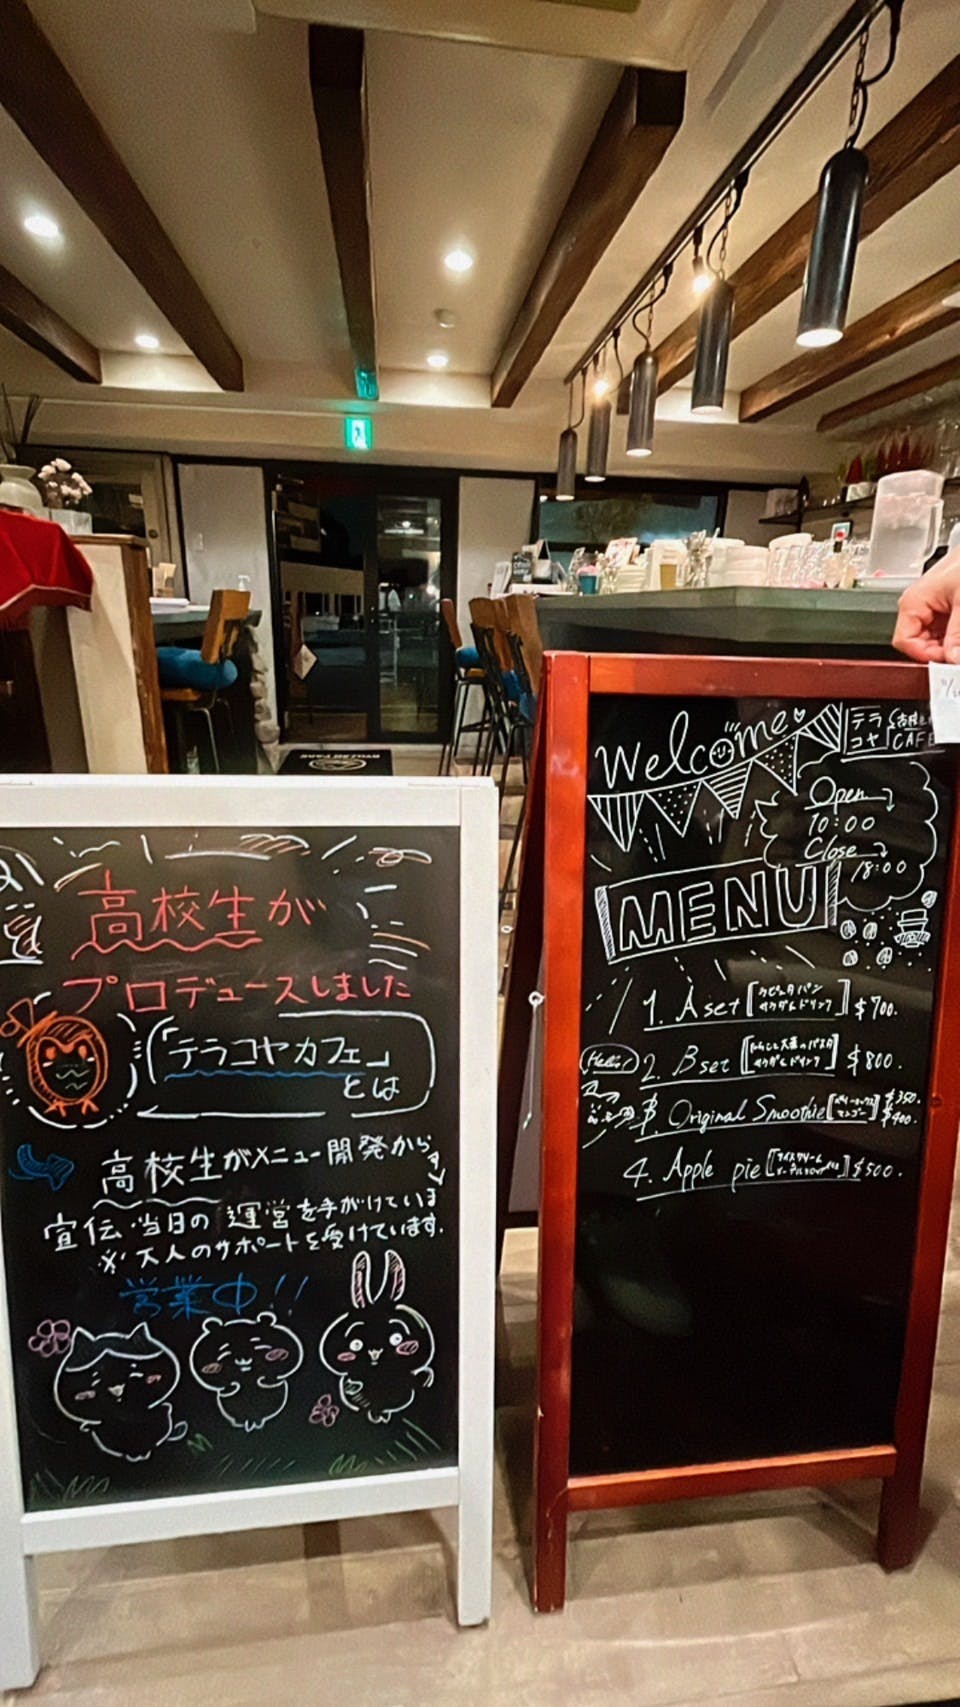 高校生が
プロデュースしました
「テラコヤカフェ」
とは
高校生がメニュー開発から
宣伝 当日の 運営を手がけていま
※大人のサポートを受けています.
営業中!!
Welcome
テラ
コヤ
CAFE
Open
10:00
Close
18:00
MENU
1. A set [ラピュタパン
サラダ&ドリンク] $700.
Hello!
2. B set [
サラダ&ドリンク] $800.
Original Smoothie [
マンゴー] $350.
$400.
4. Apple pie [アイスクリーム
] $500.